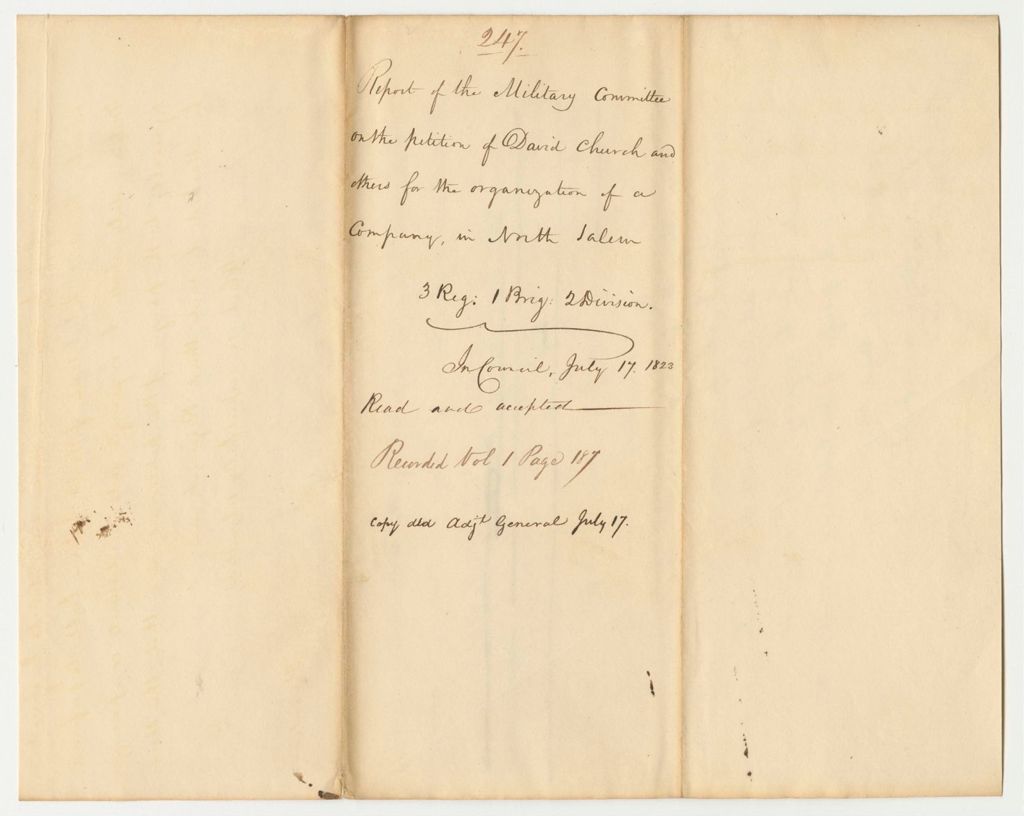 247.
Report of the Military Committee
on the petition of David Church and
others for the organization of a
Company, in North Salem
3 Reg: 1 Brig: 2 Division.
In Council, July 17. 1823
Read and accepted
Recorded Vol 1 Page 187
Copy dld Adjt General July 17.